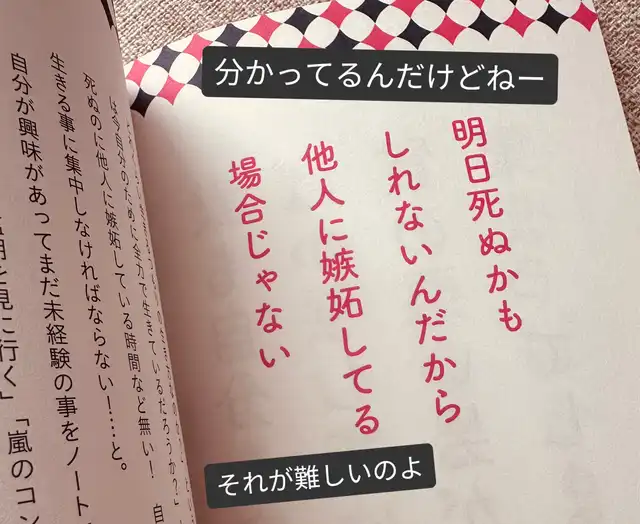 分かってるんだけどねー
明日死ぬかも
しれないんだから
他人に嫉妬してる
場合じゃない
それが難しいのよ
は今自分のために全力で生きているだろうか？」
死ぬのに他人に嫉妬している時間など無い！
生きる事に集中しなければならない！…と。
自分が興味があってまだ未経験の事をノート
を見に行く」「嵐のコン